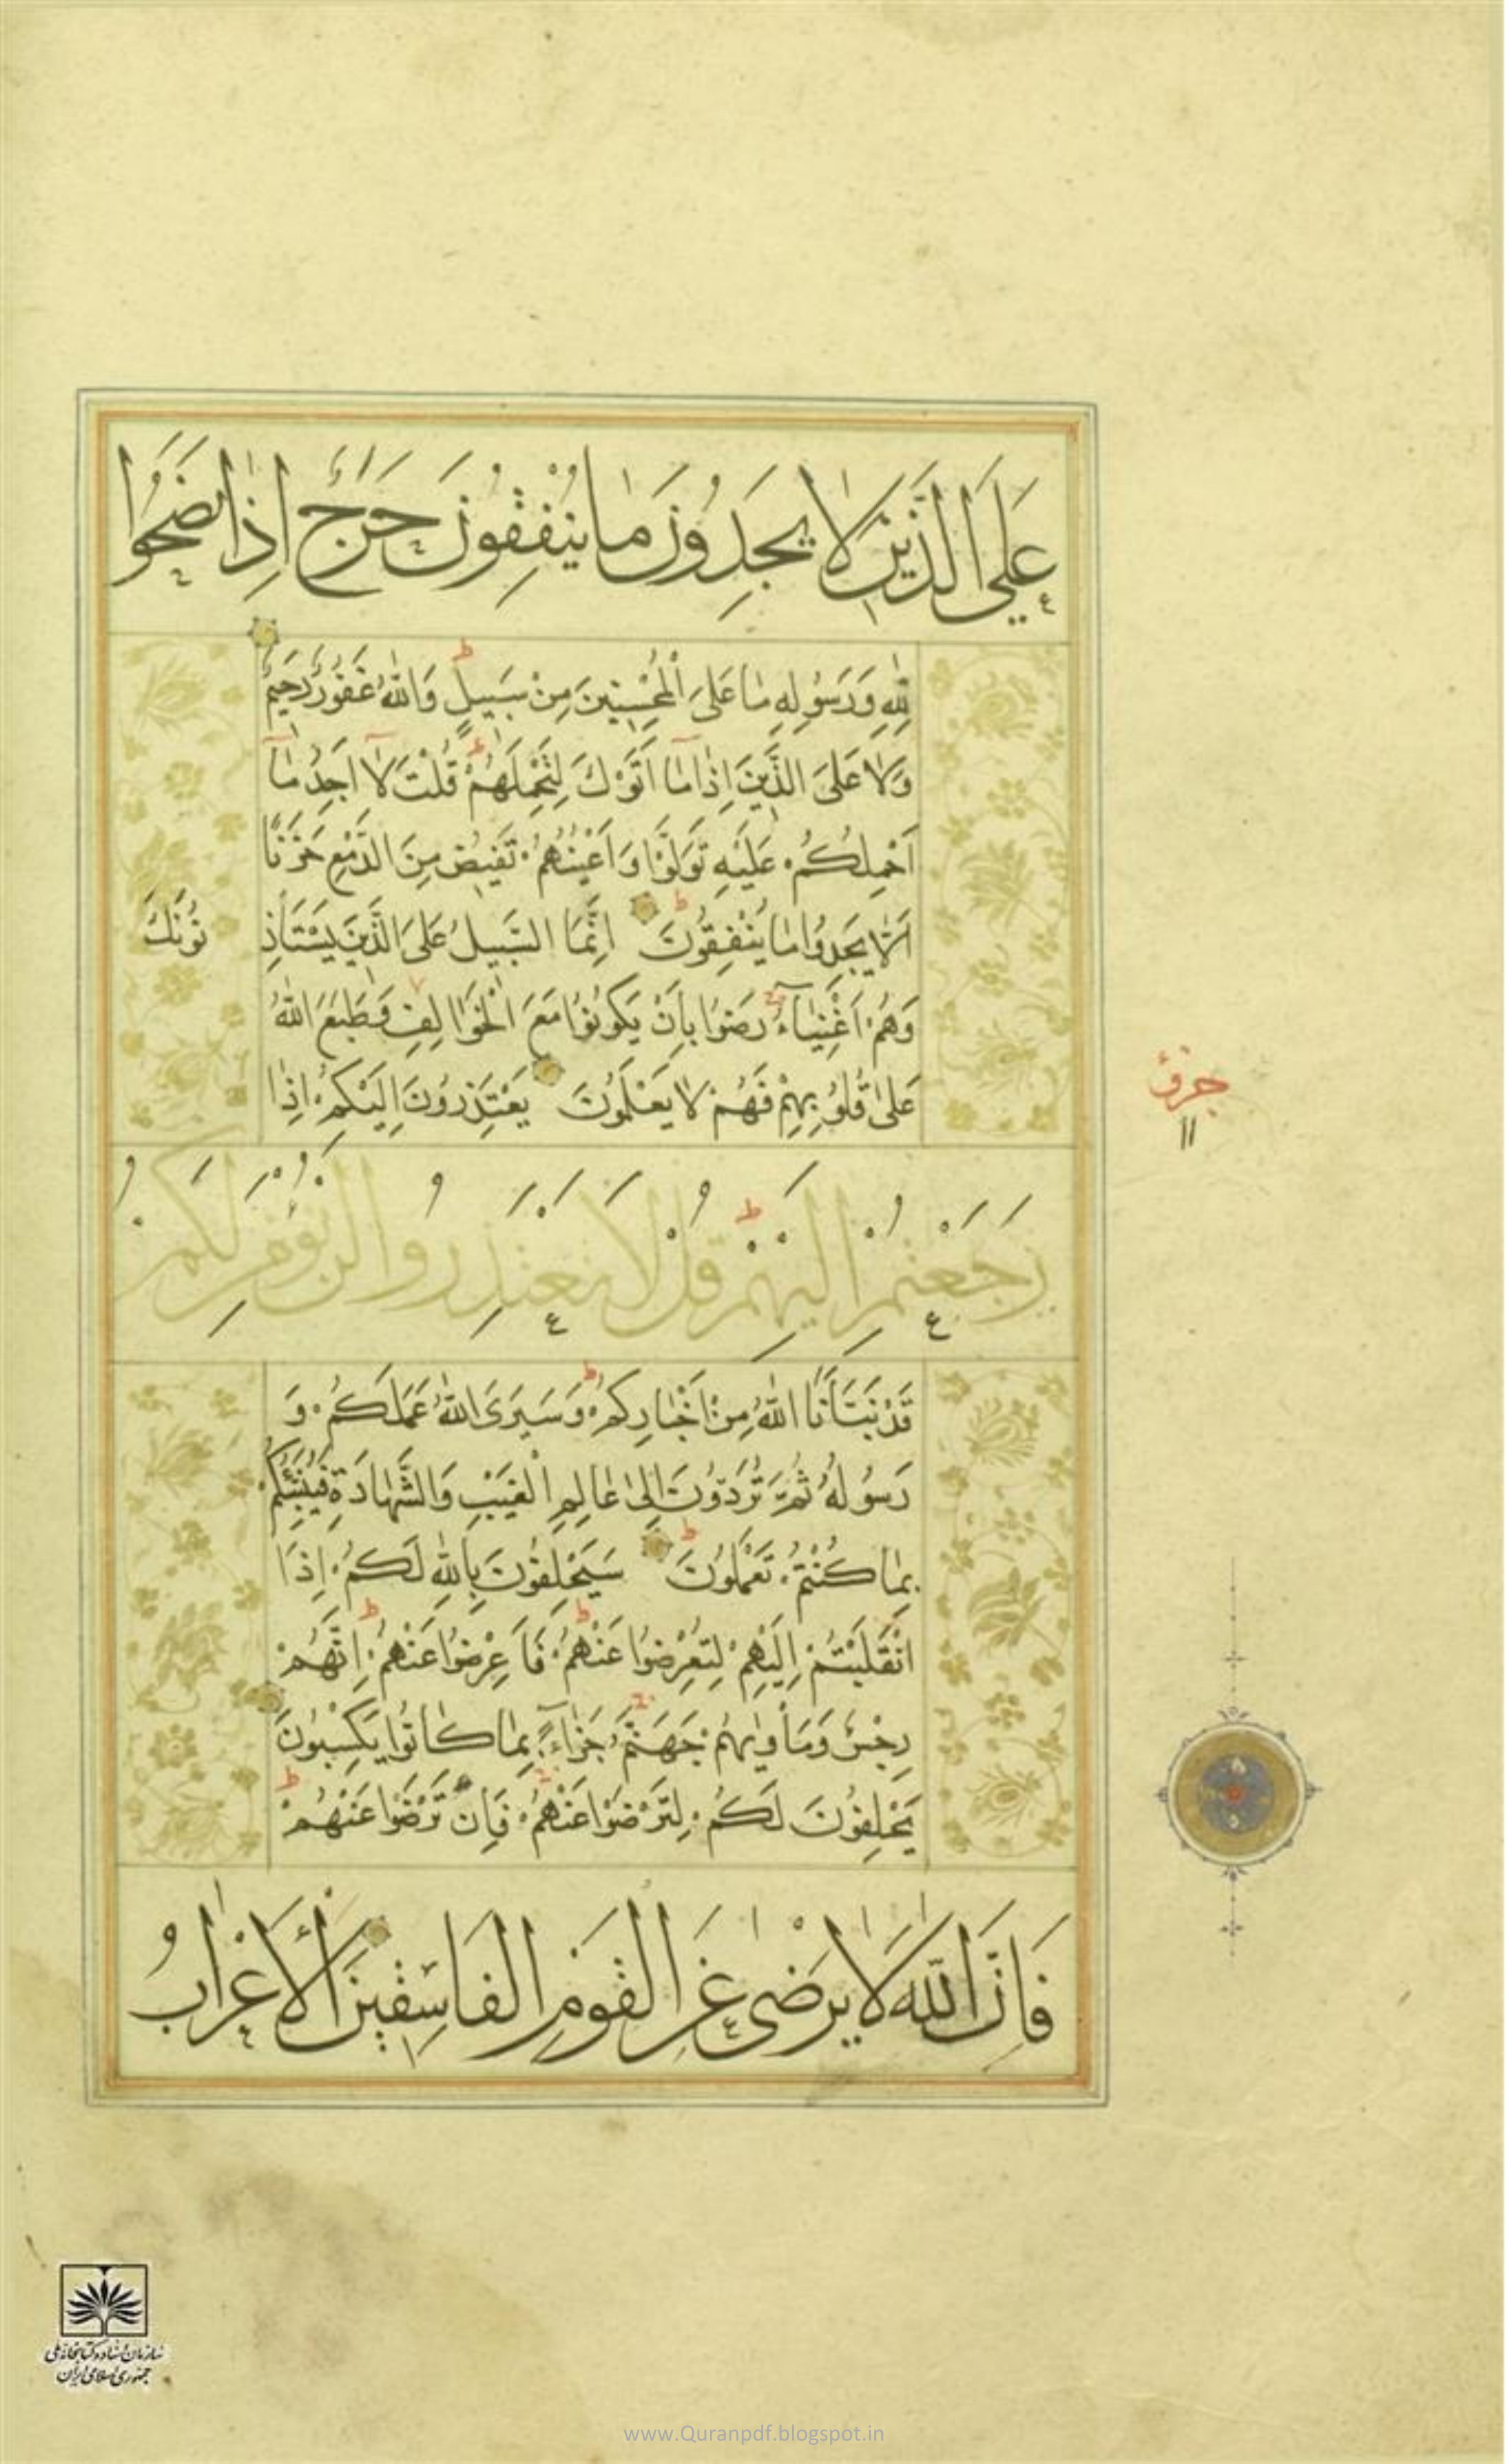 عَلَى الَّذِينَ لَا يَجِدُونَ مَا يُنْفِقُونَ حَرَجٌ إِذَا نَصَحُوا
لِلّٰهِ وَرَسُولِهِ مَا عَلَى الْمُحْسِنِينَ مِنْ سَبِيلٍ وَاللّٰهُ غَفُورٌ رَحِيمٌ
وَلَا عَلَى الَّذِينَ إِذَا مَا أَتَوْكَ لِتَحْمِلَهُمْ قُلْتَ لَا أَجِدُ مَا
أَحْمِلُكُمْ عَلَيْهِ تَوَلَّوْا وَأَعْيُنُهُمْ تَفِيضُ مِنَ الدَّمْعِ حَزَنًا
أَلَّا يَجِدُوا مَا يُنْفِقُونَ إِنَّمَا السَّبِيلُ عَلَى الَّذِينَ يَسْتَأْذِ
نُونَكَ
وَهُمْ أَغْنِيَاءُ رَضُوا بِأَنْ يَكُونُوا مَعَ الْخَوَالِفِ وَطَبَعَ اللّٰهُ
عَلٰى قُلُوبِهِمْ فَهُمْ لَا يَعْلَمُونَ يَعْتَذِرُونَ إِلَيْكُمْ إِذَا
رَجَعْتُمْ إِلَيْهِمْ قُلْ لَا تَعْتَذِرُوا لَنْ نُؤْمِنَ لَكُمْ
قَدْ نَبَّأَنَا اللّٰهُ مِنْ أَخْبَارِكُمْ وَسَيَرَى اللّٰهُ عَمَلَكُمْ وَ
رَسُولُهُ ثُمَّ تُرَدُّونَ إِلٰى عَالِمِ الْغَيْبِ وَالشَّهَادَةِ فَيُنَبِّئُكُمْ
بِمَا كُنْتُمْ تَعْمَلُونَ سَيَحْلِفُونَ بِاللّٰهِ لَكُمْ إِذَا
انْقَلَبْتُمْ إِلَيْهِمْ لِتُعْرِضُوا عَنْهُمْ فَأَعْرِضُوا عَنْهُمْ إِنَّهُمْ
رِجْسٌ وَمَأْوٰيهُمْ جَهَنَّمُ جَزَاءً بِمَا كَانُوا يَكْسِبُونَ
يَحْلِفُونَ لَكُمْ لِتَرْضَوْا عَنْهُمْ فَإِنْ تَرْضَوْا عَنْهُمْ
فَإِنَّ اللّٰهَ لَا يَرْضٰى عَنِ الْقَوْمِ الْفَاسِقِينَ الْأَعْرَابُ
۱۱
سازمان اسناد و کتابخانه ملی
جمهوری اسلامی ایران
www.Quranpdf.blogspot.in